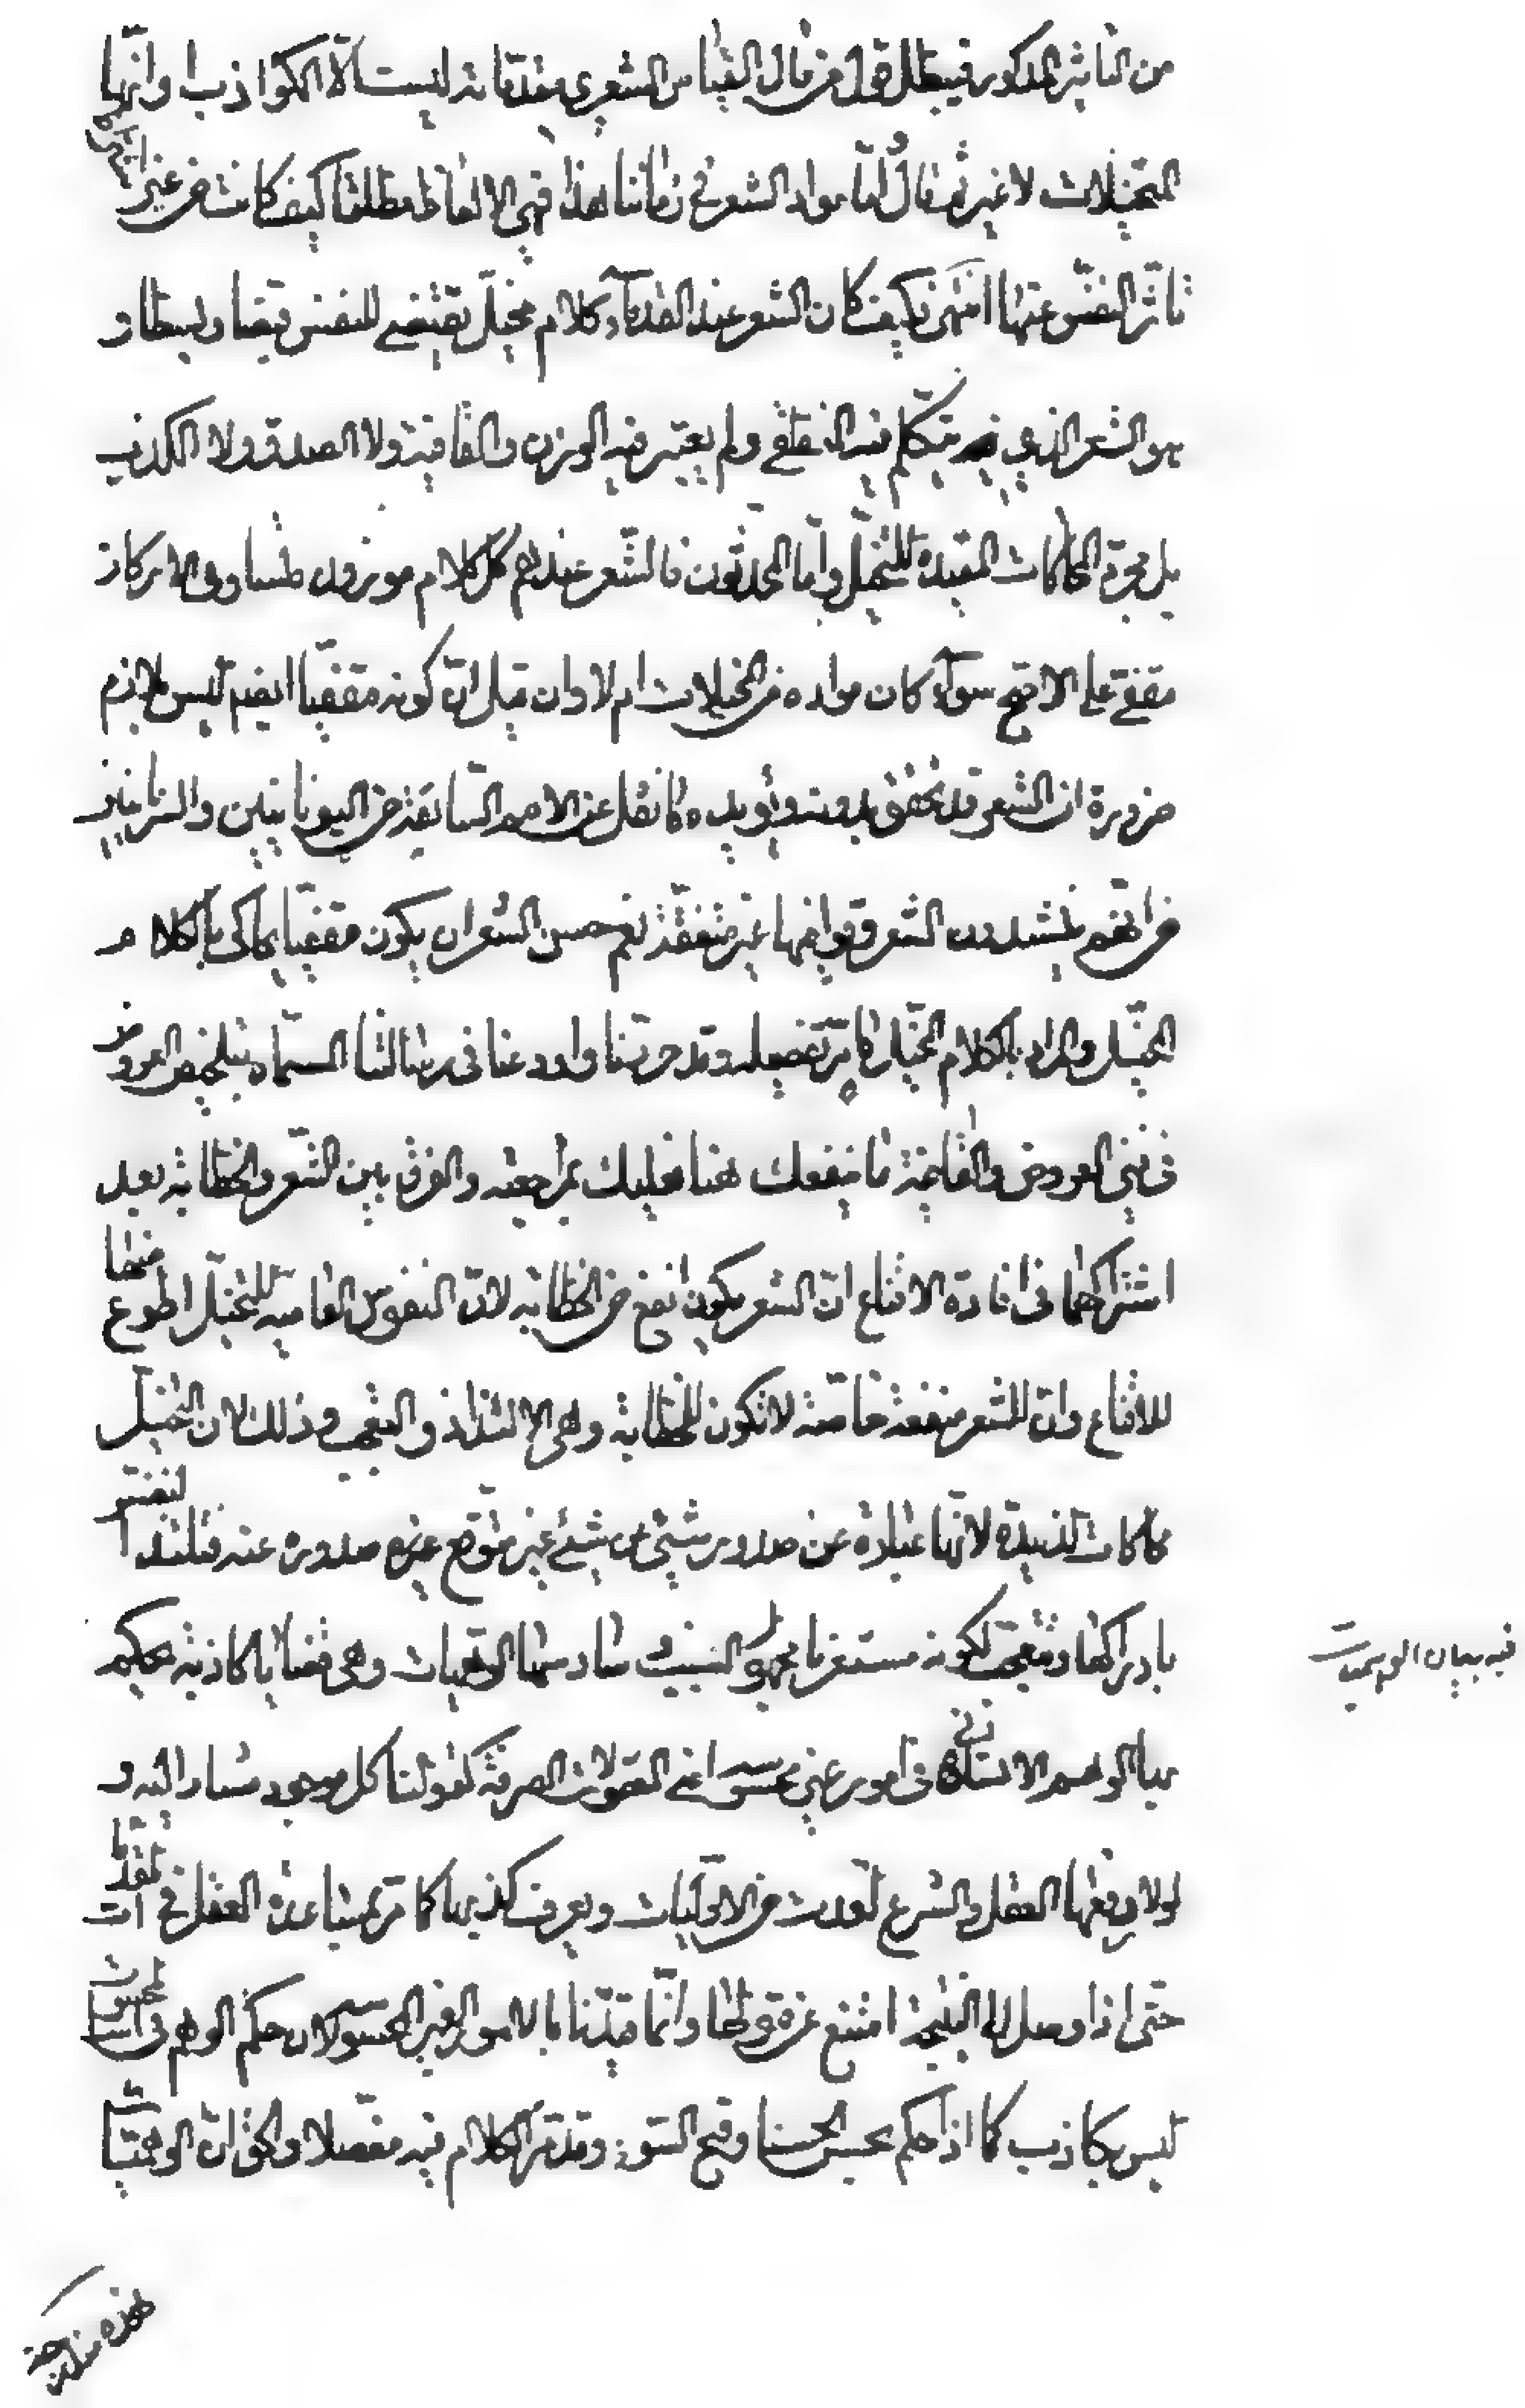 من التاثير المذكور فيبطل قول من قال القياس الشعري مقدماته ليست الا الكواذب وانها
المتخيلات لا غير ثم قال اما مواد الشعر في زماننا هذا فهي الالفاظ مطلقا كيف كانت من غير اشتراط
تاثر النفس عنها انتهى فكيف كان الشعر عند القدمآء كلام مخيل يقتضي للنفس قبضا وبسطا و
هو الشعر الذي يتكلم فيه المنطقي ولم يعتبر فيه الوزن والقافية ولا الصدق ولا الكذب
بل مجرد المحاكات المفيدة للتخيل واما المحدثون فالشعر عندهم كل كلام موزون متساوي الاركان
مقفي على الاصح سوآء كان مواده من المخيلات ام لا وان قيل ان كونه مقفيا ايضم ليس بلازم
ضرورة ان الشعر قد تحقق بدونه ويؤيده ما نقل عن الامم السابقة من اليونانيين والسريانيين
من انهم ينشدون الشعر وقوافيها غير متفقة نعم حسن الشعر ان يكون مقفيا يحاكى بالكلام
المخيل والمراد بالكلام المخيل ما مر تفصيله وقد حررنا واودعنا في رسالتنا المسماة بتلخيص العروض
في فني العروض والقافية ما ينفعك هنا فعليك بمراجعته والفرق بين الشعر والخطابة بعد
اشتراكهما في افادة الاقناع ان الشعر يكون انفع من الخطابة لان النفوس العامية للتخيل اطوع منها
للاقناع وان للشعر منفعة خاصة لا تكون للخطابة وهي الالتذاذ والتعجب وذلك لان التخييل
محاكات لذيذة لانها عبارة عن صدور شيء من شيء غير متوقع صدوره عنه فتلتذ النفس
بادراكها وتتعجب لكونه مستغربا مجهول السبب وسادسها الوهميات وهي قضايا كاذبة يحكم
بها الوهم الانساني في امور غير محسوسة اعني المعقولات الصرفة كقولنا كل موجود مشار اليه و
لولا دفعها العقل والشرع لعدت من الاوليات ويعرف كذبها كما مر بمساعدة العقل في مقدمات
حتى اذا وصل الى النتيجة امتنع عن قبولها وانما قيدنا بالامور الغير المحسوسة لان حكم الوهم في المحسوسات
ليس بكاذب كما اذا حكم بحسن الحسنا وقبح الشوه وقد مر الكلام فيه مفصلا والحق ان الوهميات
فيه بيان الوهميات